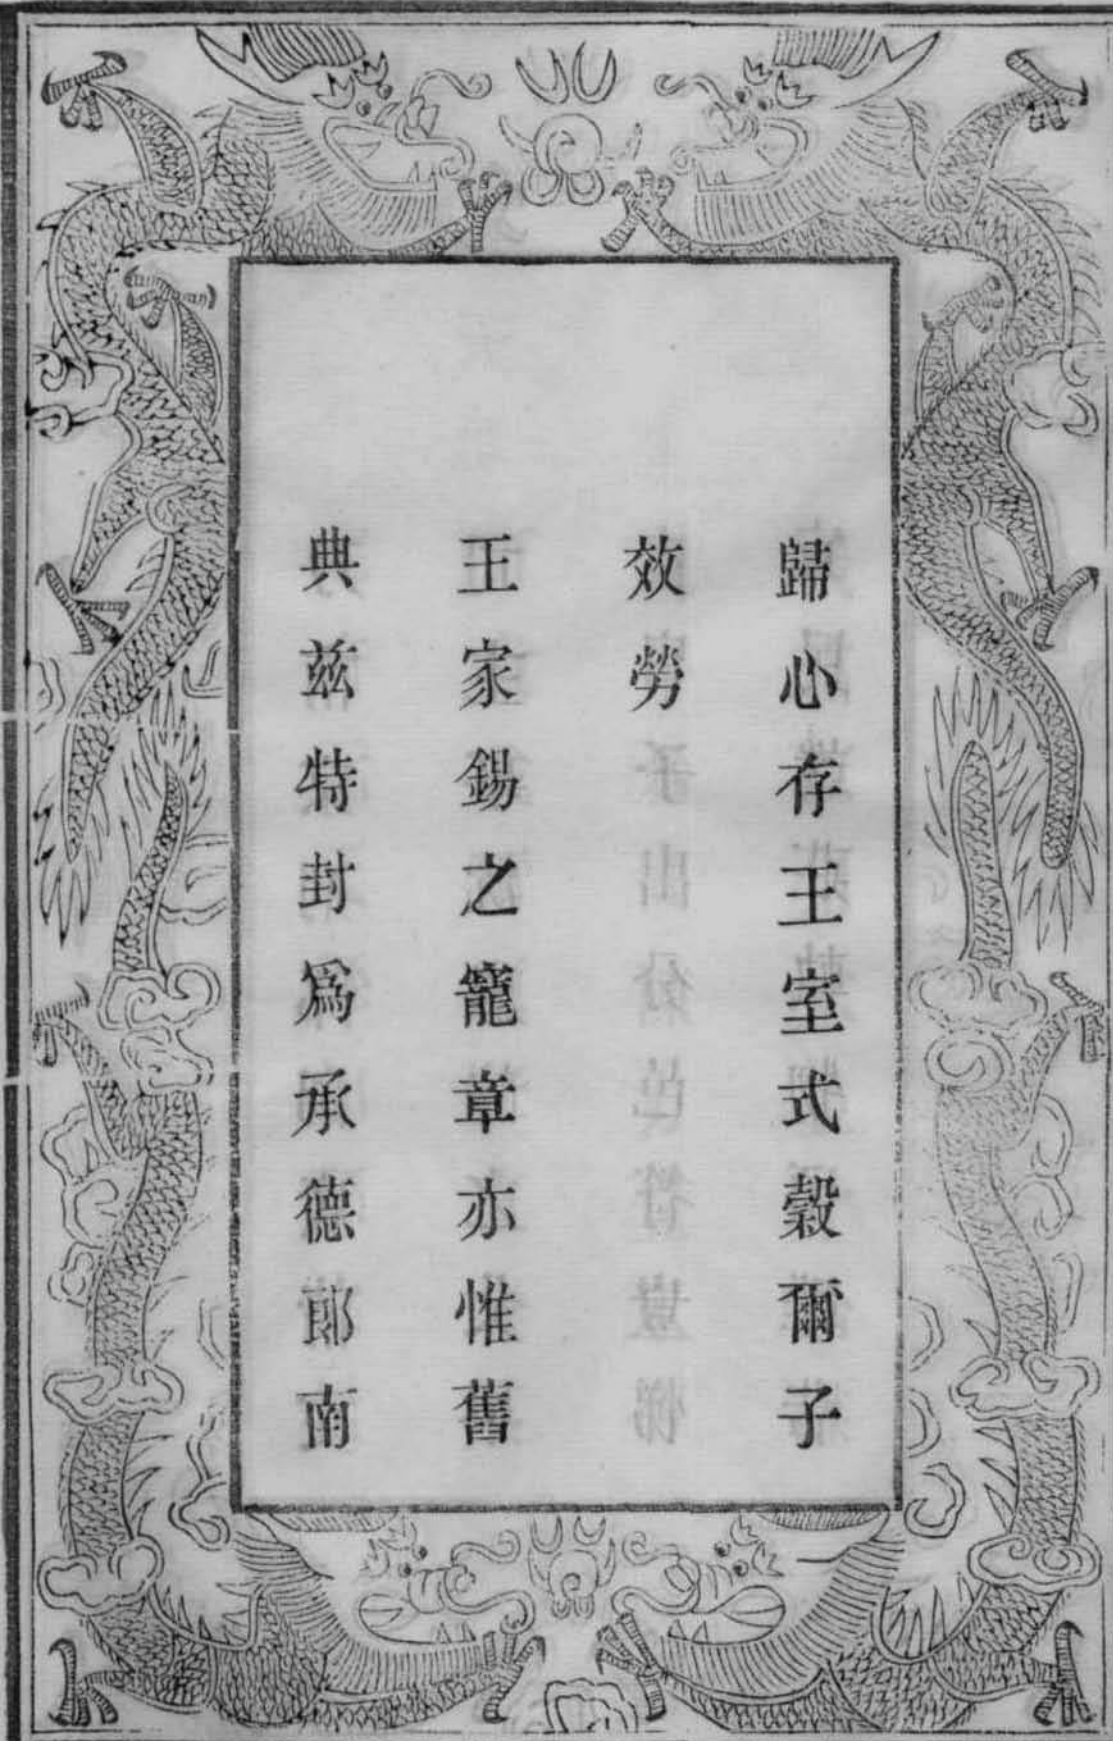 歸心存王室式穀爾子
效勞
王家錫之寵章亦惟舊
典兹特封爲承德郎南